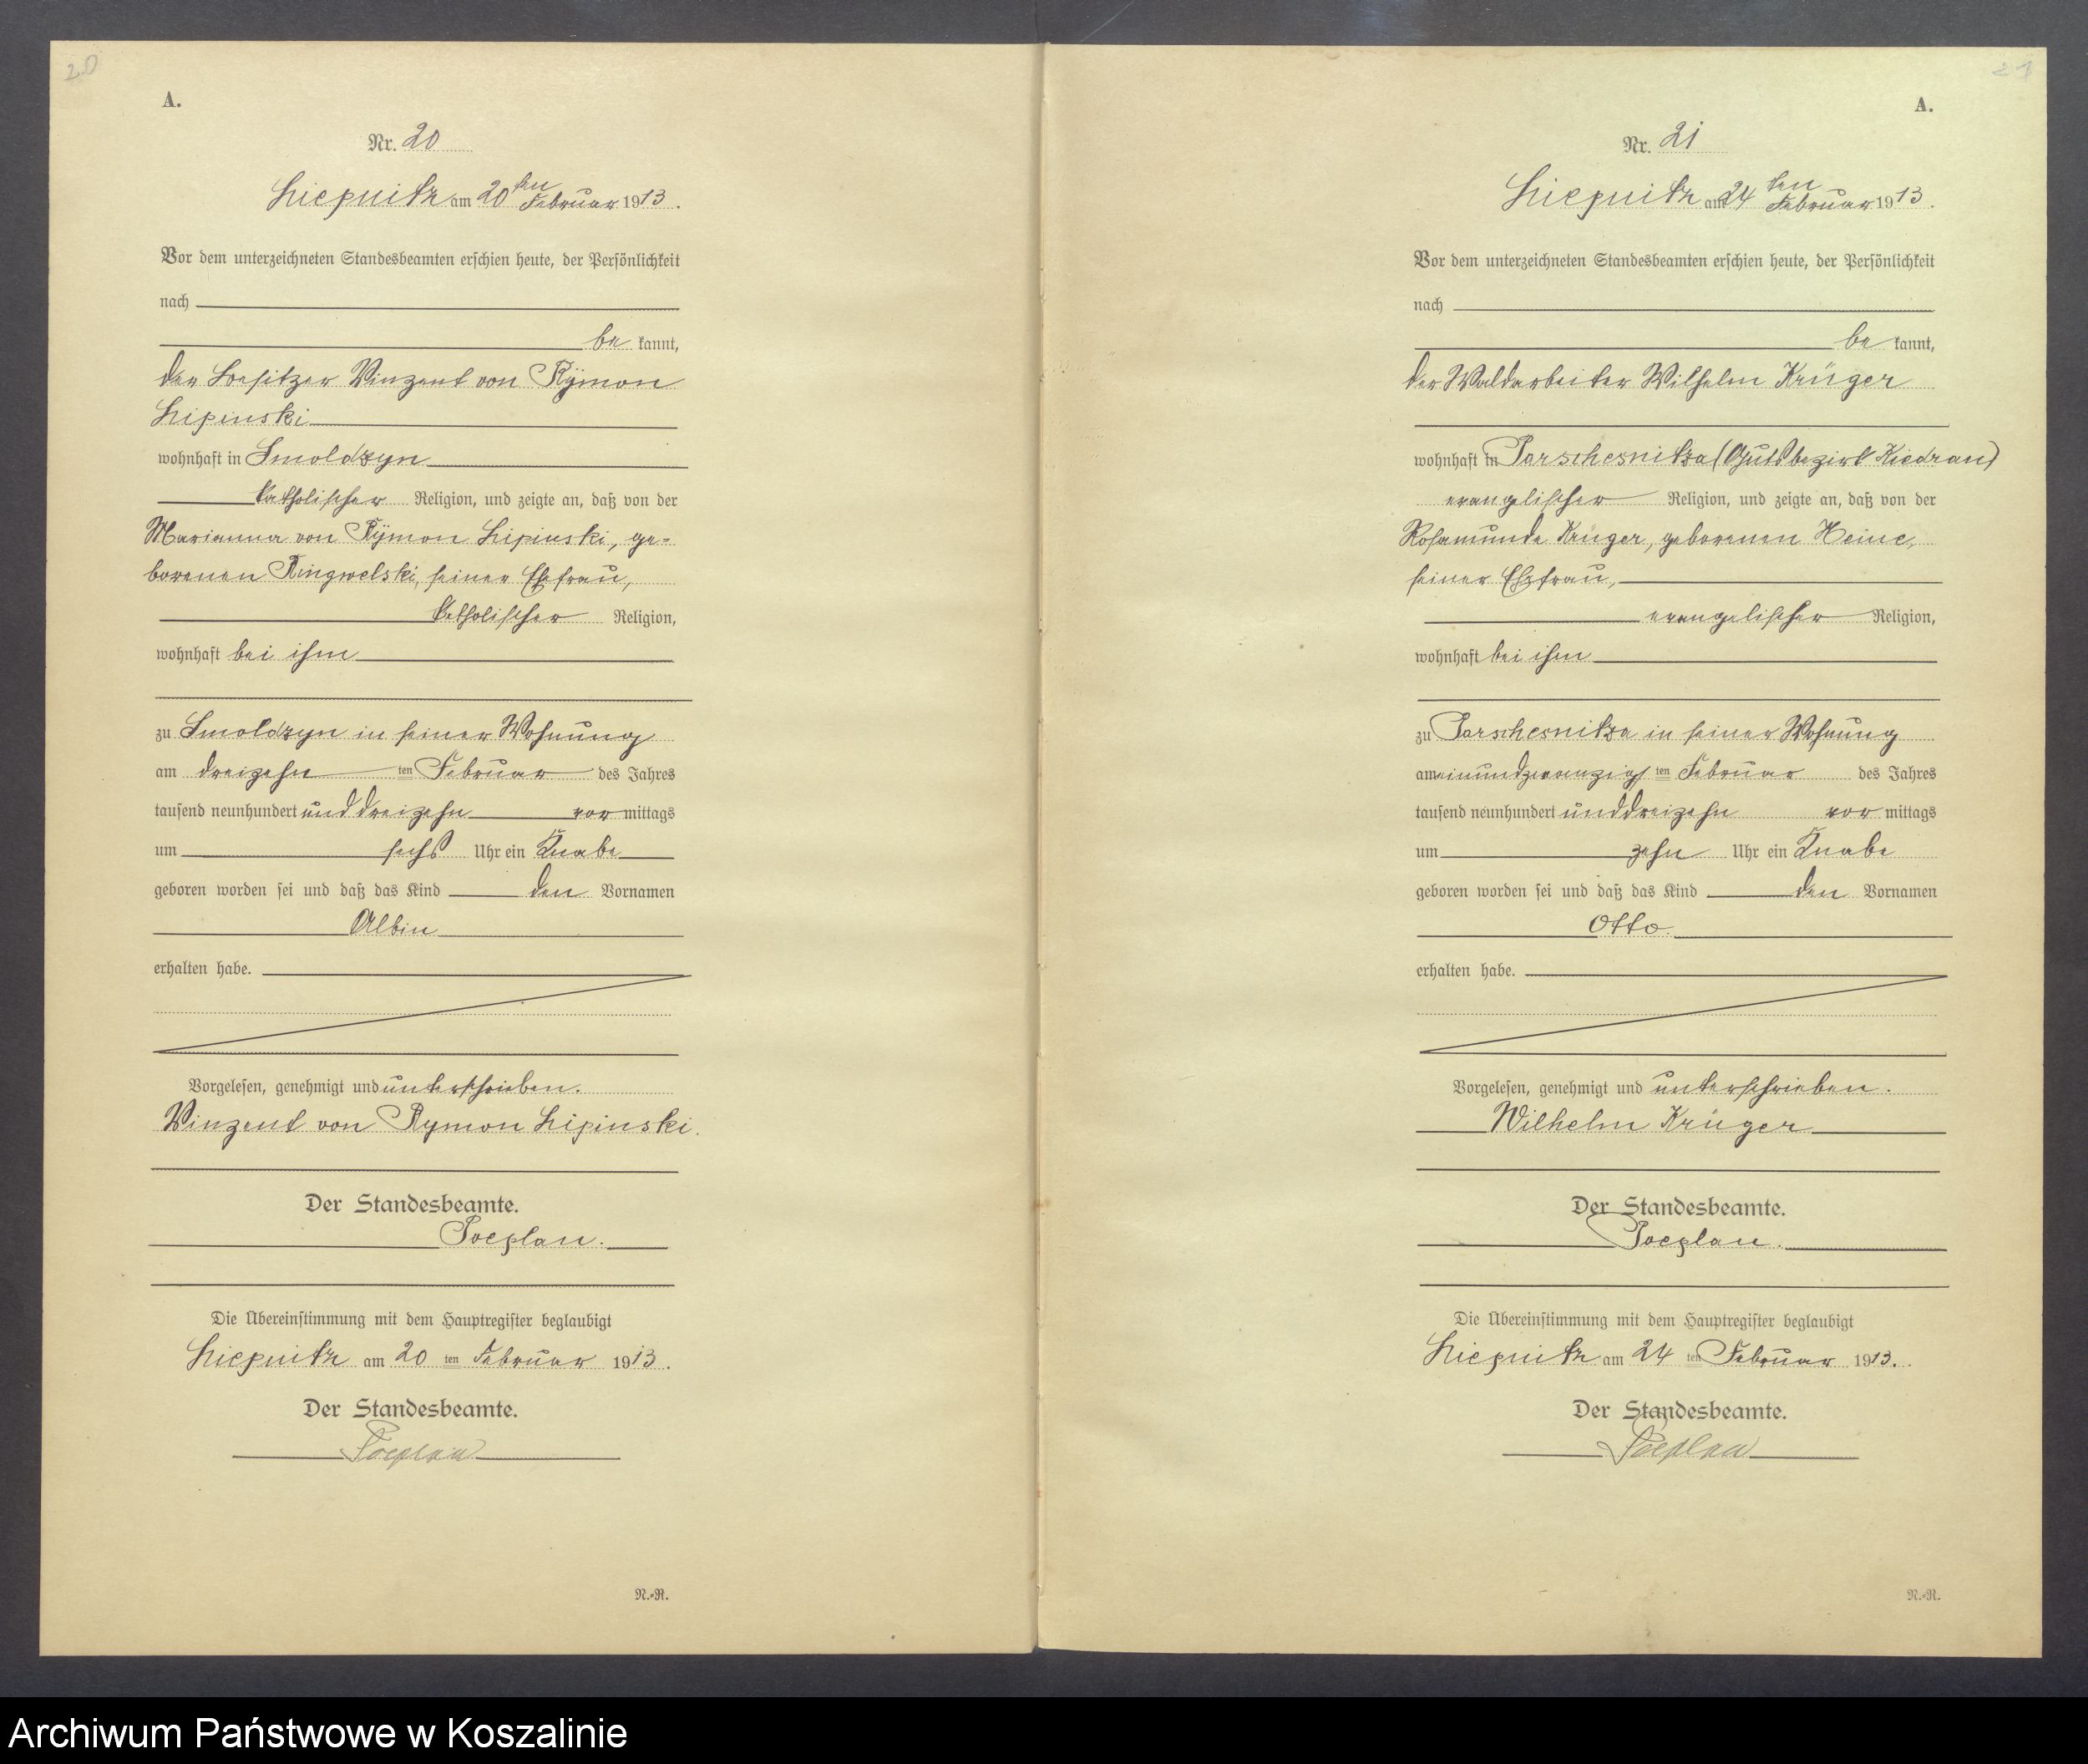 20
A.
Nr. 20
Liepnitz am 20 ten Februar 1913.
Vor dem unterzeichneten Standesbeamten erschien heute, der Persönlichkeit
nach
be kannt,
der Besitzer Vinzent von Rymon
Lipinski
wohnhaft in Smoldzyn
katholischer Religion, und zeigte an, daß von der
Marianna von Rymon Lipinski, ge=
borenen Ringwelski, seiner Ehefrau,
katholischer Religion,
wohnhaft bei ihm
zu Smoldzyn in seiner Wohnung
am dreizehn ten Februar des Jahres
tausend neunhundert und dreizehn vor mittags
um sechs Uhr ein Knabe
geboren worden sei und daß das Kind den Vornamen
Albin
erhalten habe.
Vorgelesen, genehmigt und unterschrieben.
Vinzent von Rymon Lipinski.
Der Standesbeamte.
Poeplau.
Die Übereinstimmung mit dem Hauptregister beglaubigt
Liepnitz am 20 ten Februar 1913.
Der Standesbeamte.
Poeplau
N.=R.
21
A.
Nr. 21
Liepnitz am 24 ten Februar 1913.
Vor dem unterzeichneten Standesbeamten erschien heute, der Persönlichkeit
nach
be kannt,
der Waldarbeiter Wilhelm Krüger
wohnhaft in Parschesnitza (Gutsbezirk Kiedrau)
evangelischer Religion, und zeigte an, daß von der
Rosamunde Krüger, geborenen Heine,
seiner Ehefrau,
evangelischer Religion,
wohnhaft bei ihm
zu Parschesnitza in seiner Wohnung
am einundzwanzigs ten Februar des Jahres
tausend neunhundert und dreizehn vor mittags
um zehn Uhr ein Knabe
geboren worden sei und daß das Kind den Vornamen
Otto.
erhalten habe.
Vorgelesen, genehmigt und unterschrieben.
Wilhelm Krüger
Der Standesbeamte.
Poeplau.
Die Übereinstimmung mit dem Hauptregister beglaubigt
Liepnitz am 24 ten Februar 1913.
Der Standesbeamte.
Poeplau
N.=R.
Archiwum Państwowe w Koszalinie